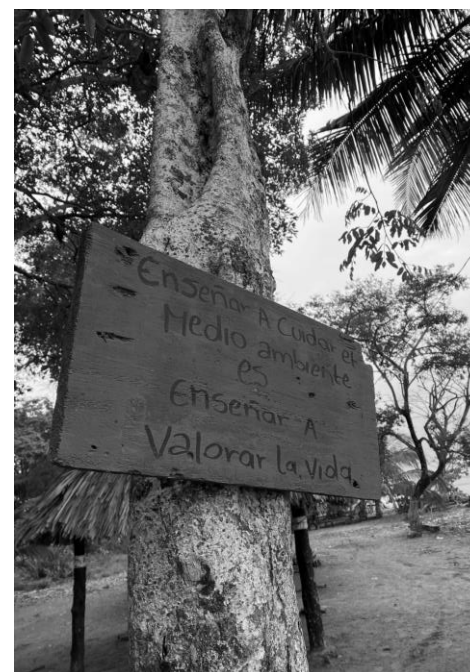 Enseñar A Cuidar el
Medio ambiente
es
Enseñar A
Valorar la vida.